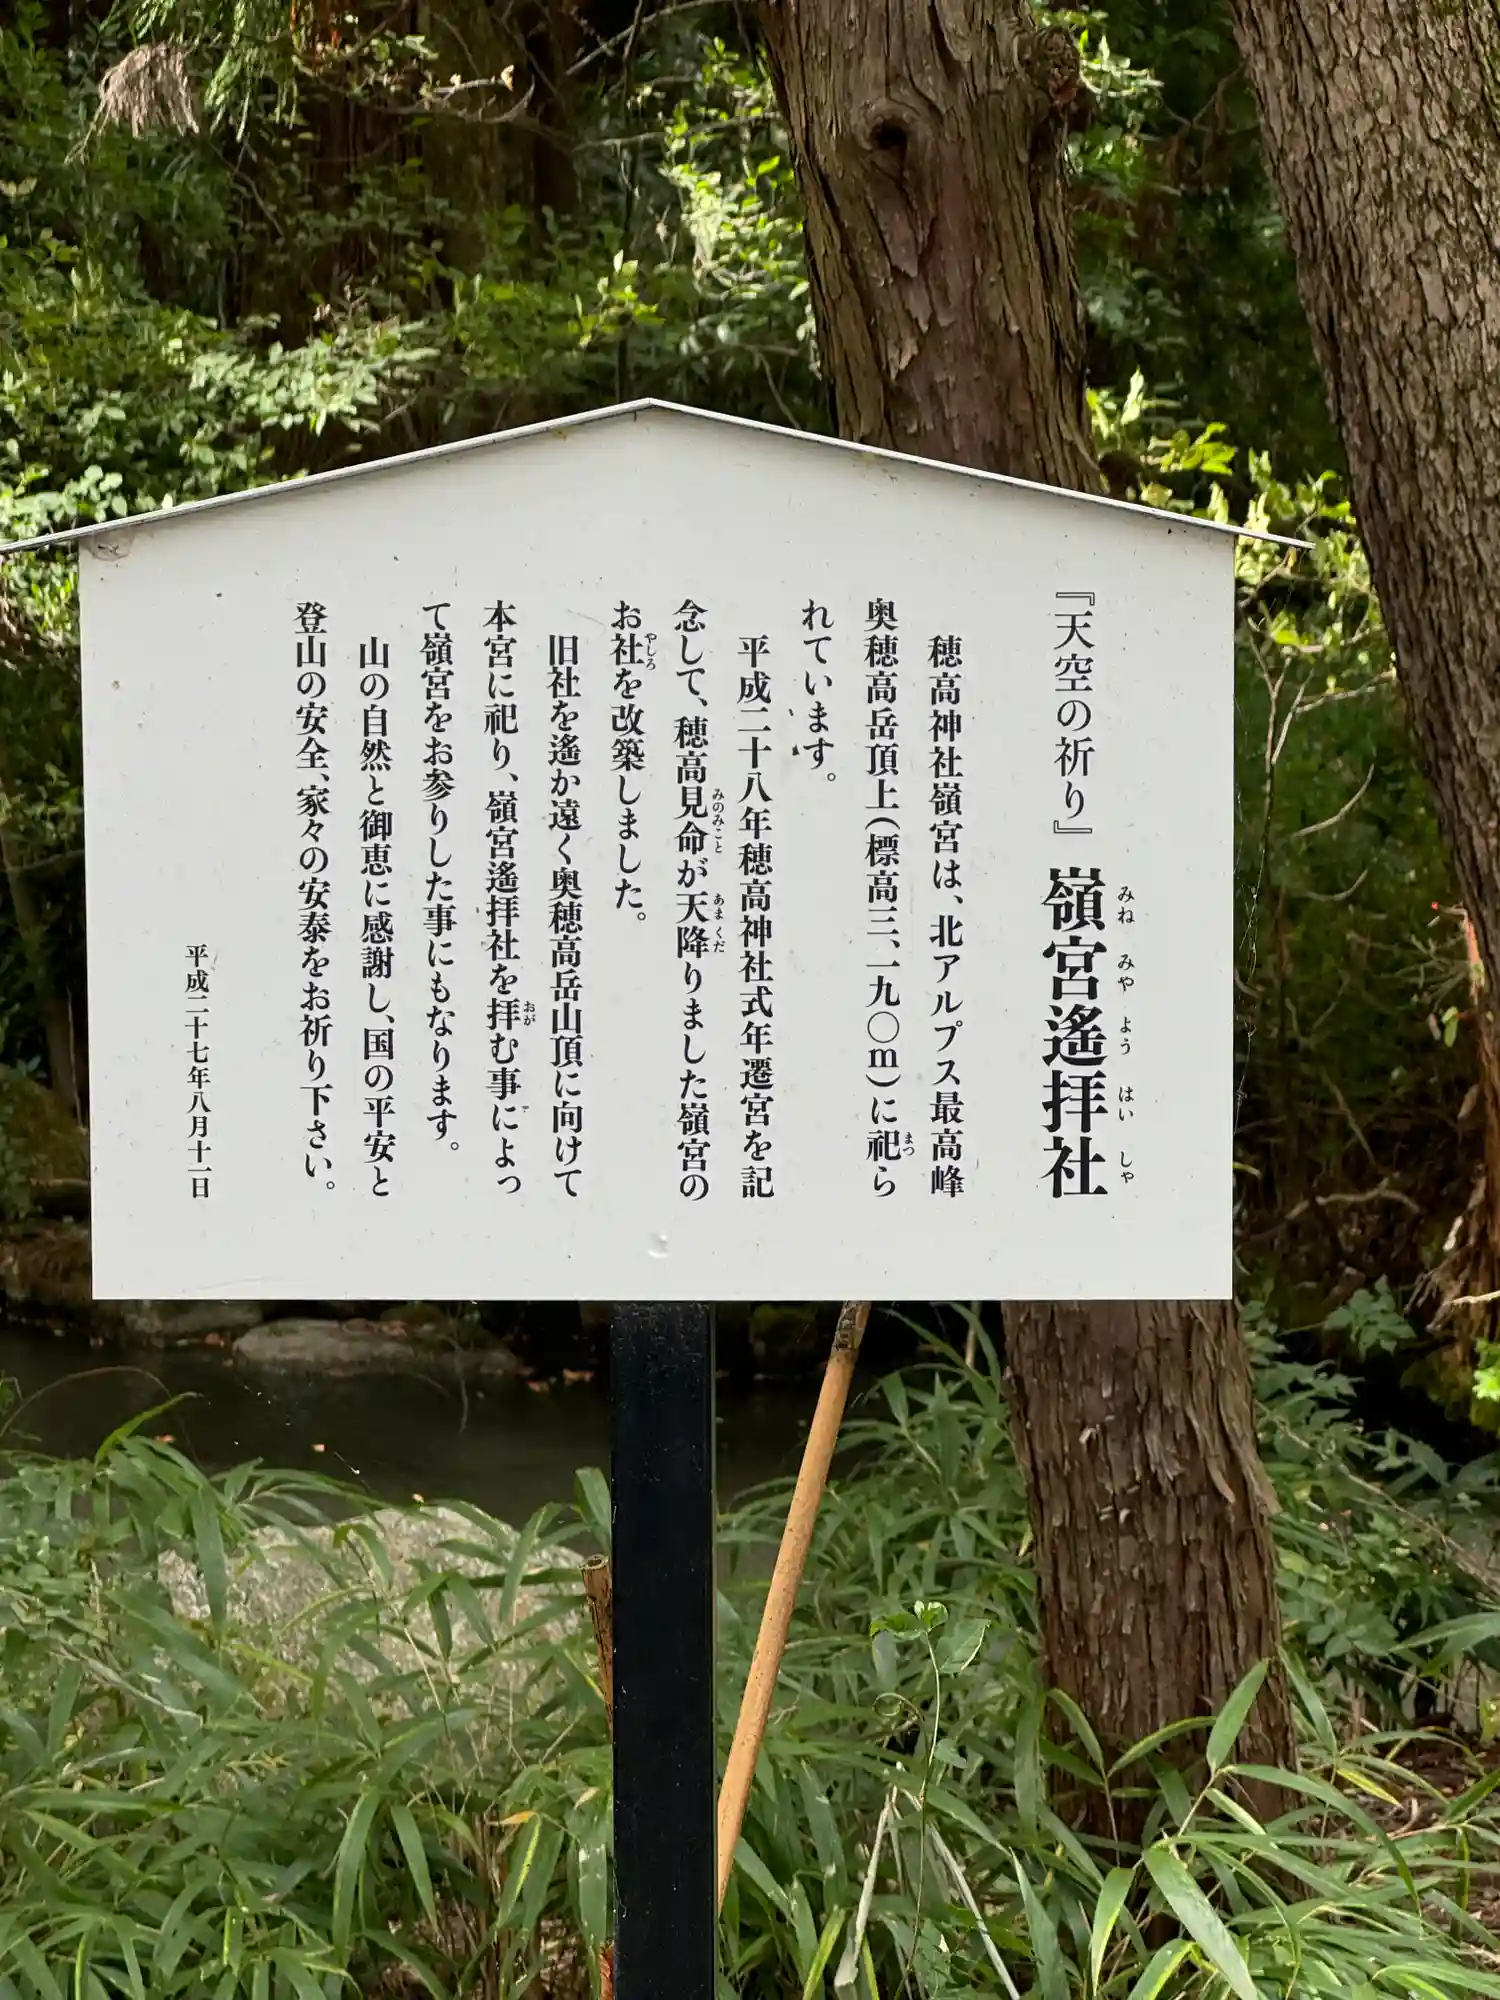 『天空の祈り』嶺宮遙拝社
みねみやようはいしゃ
穂高神社嶺宮は、北アルプス最高峰
奥穂高岳頂上(標高三、一九〇m)に祀ら
まつ
れています。
平成二十八年穂高神社式年遷宮を記
念して、穂高見命が天降りました嶺宮の
みのみこと あまくだ
お社を改築しました。
やしろ
旧社を遙か遠く奥穂高岳山頂に向けて
本宮に祀り、嶺宮遙拝社を拝む事によっ
おが
て嶺宮をお参りした事にもなります。
山の自然と御恵に感謝し、国の平安と
登山の安全、家々の安泰をお祈り下さい。
平成二十七年八月十一日